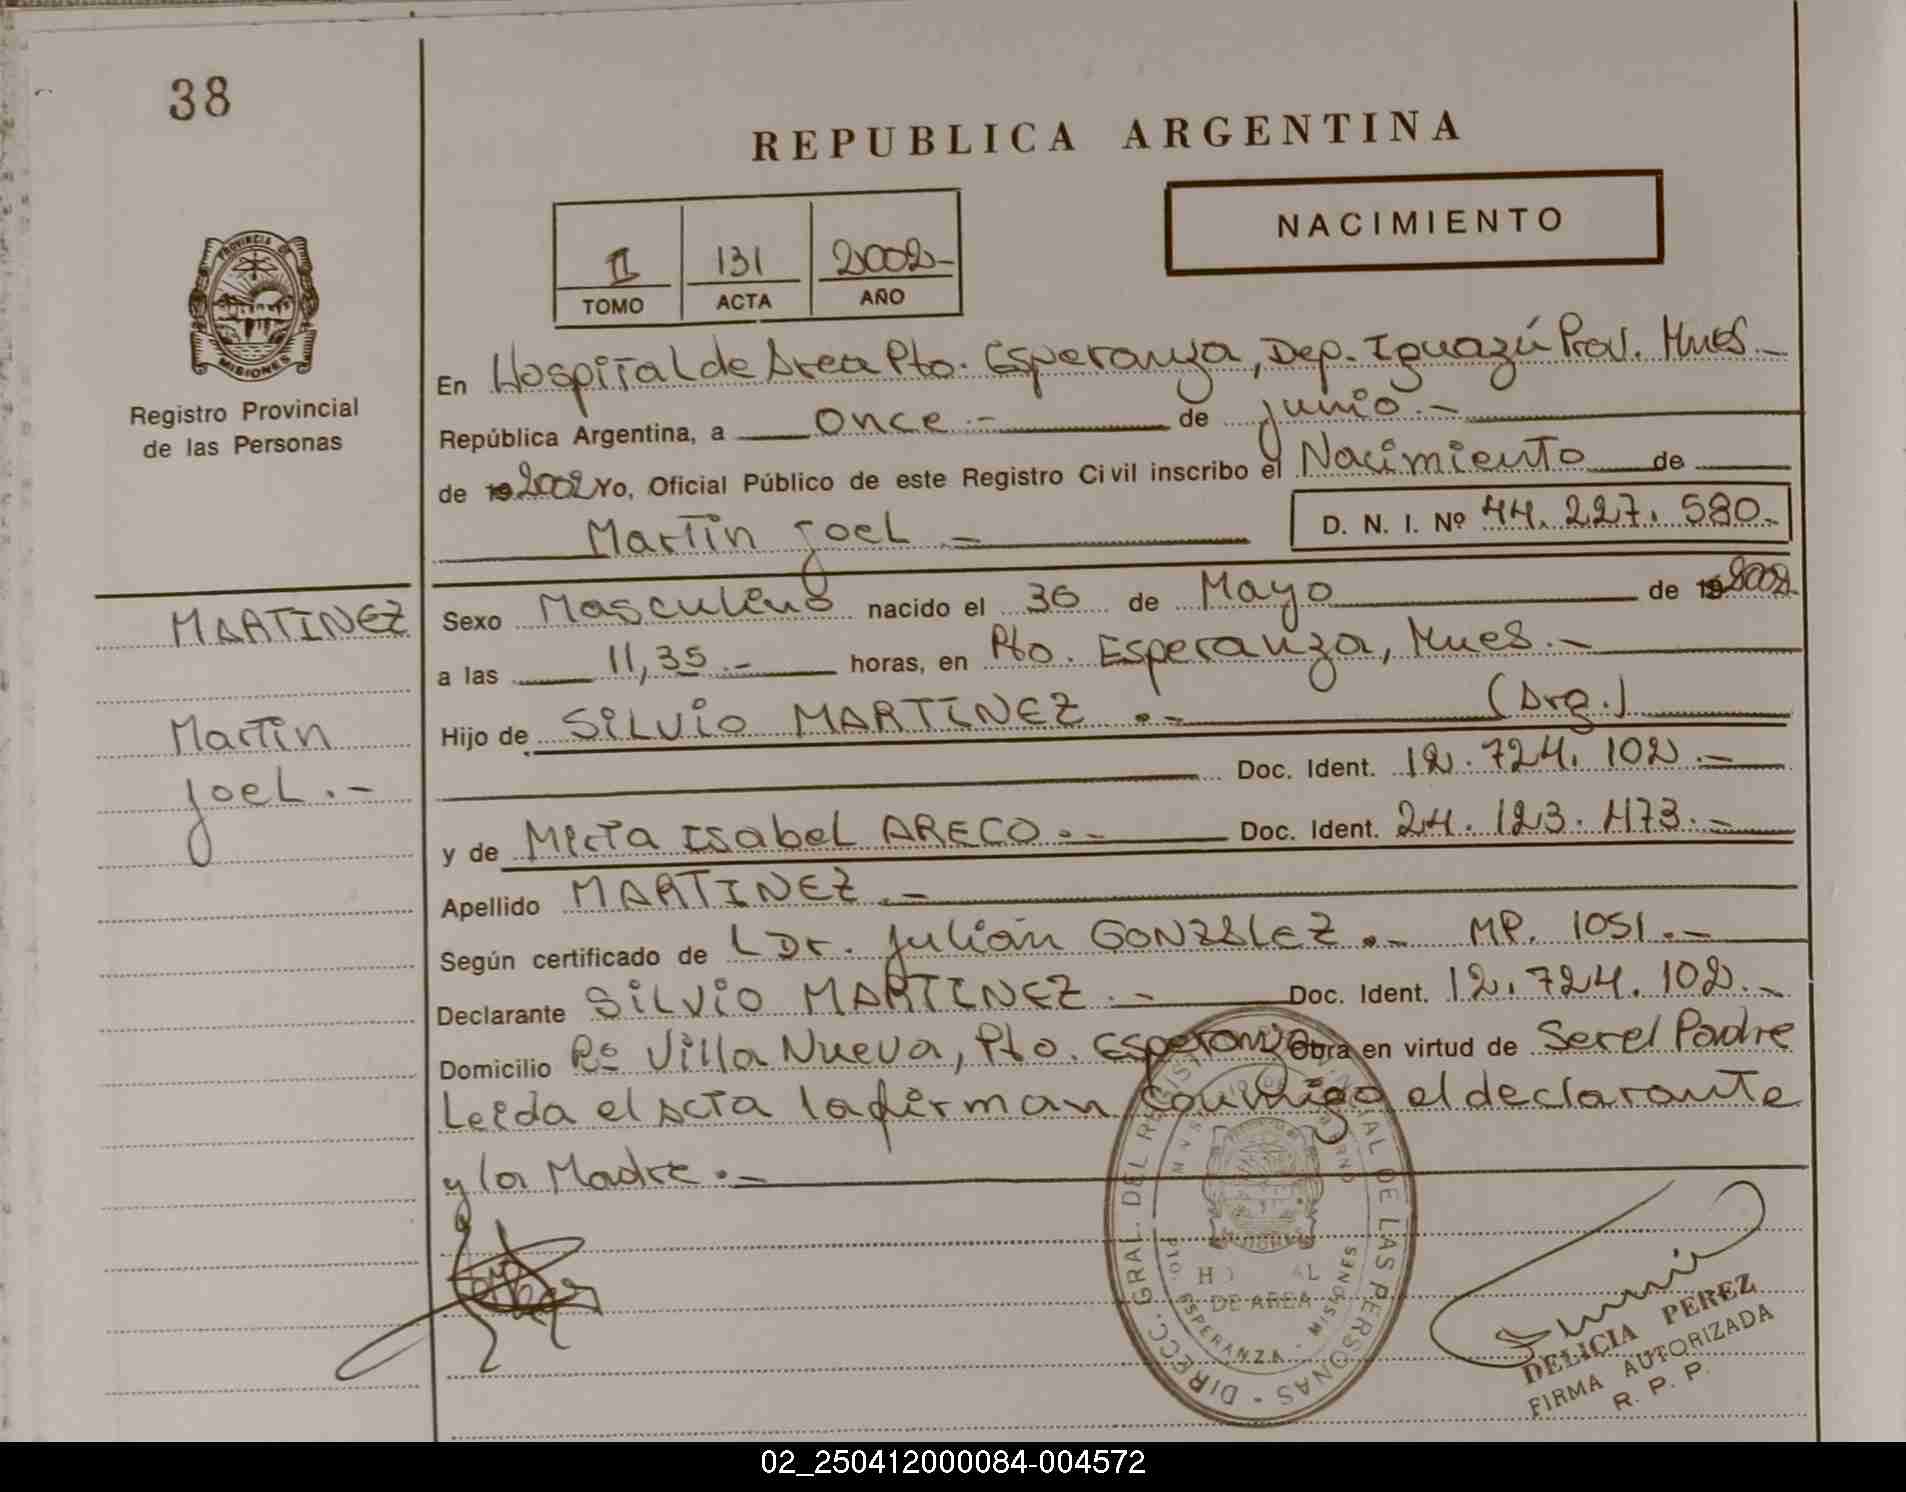 38
REPUBLICA ARGENTINA
NACIMIENTO
II 131 2002-
TOMO ACTA AÑO
PROVINCIA DE
MISIONES
Registro Provincial
de las Personas
En Hospital de Area Pto. Esperanza, Dep. Iguazú Prov. Mnes.-
República Argentina, a Once.- de junio.-
de 19 2002 Yo, Oficial Público de este Registro Civil inscribo el Nacimiento de
Martin Joel.- D. N. I. Nº 44.227.580.-
MARTINEZ
Martin
Joel.-
Sexo Masculino nacido el 30 de Mayo de 19 2002.
a las 11,35.- horas, en Pto. Esperanza, Mnes.-
Hijo de SILVIO MARTINEZ.- (Arg.)
Doc. Ident. 12.724.102.-
y de Mirta Isabel ARECO.- Doc. Ident. 24.123.473.-
Apellido MARTINEZ.-
Según certificado de Dr. Julián GONZALEZ.- MP. 1051.-
Declarante SILVIO MARTINEZ.- Doc. Ident. 12.724.102.-
Domicilio Bº Villa Nueva, Pto. Esperanza Obra en virtud de Ser el Padre
Leida el Acta la firman conmigo el declarante
y la Madre.-
DIRECC. GRAL. DEL REGISTRO PROVINCIAL DE LAS PERSONAS
DE AREA
PTO. ESPERANZA - MISIONES
DELICIA PEREZ
FIRMA AUTORIZADA
R. P. P.
02_250412000084-004572